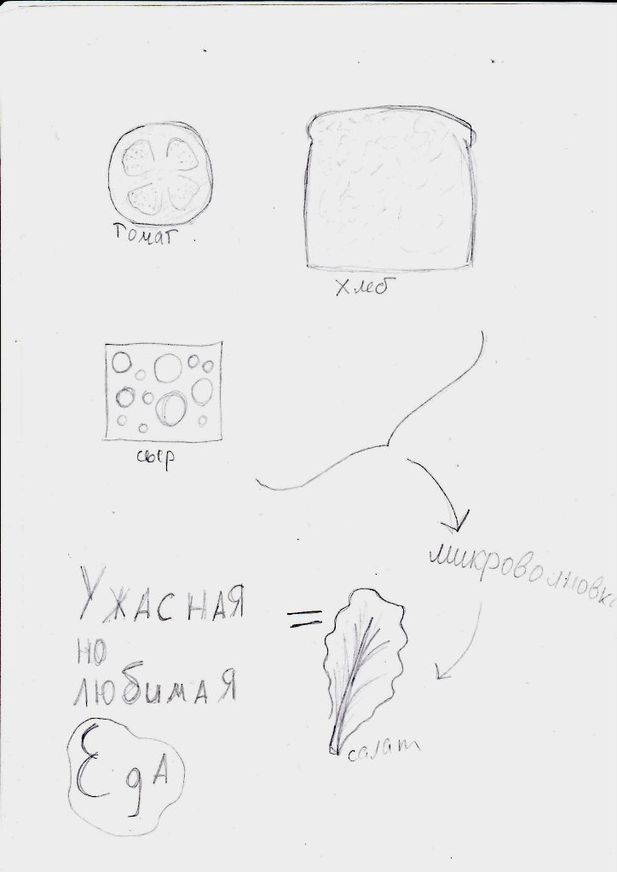 томат
хлеб
сыр
микроволновка
салат
=
Ужасная
но
любимая
Еда